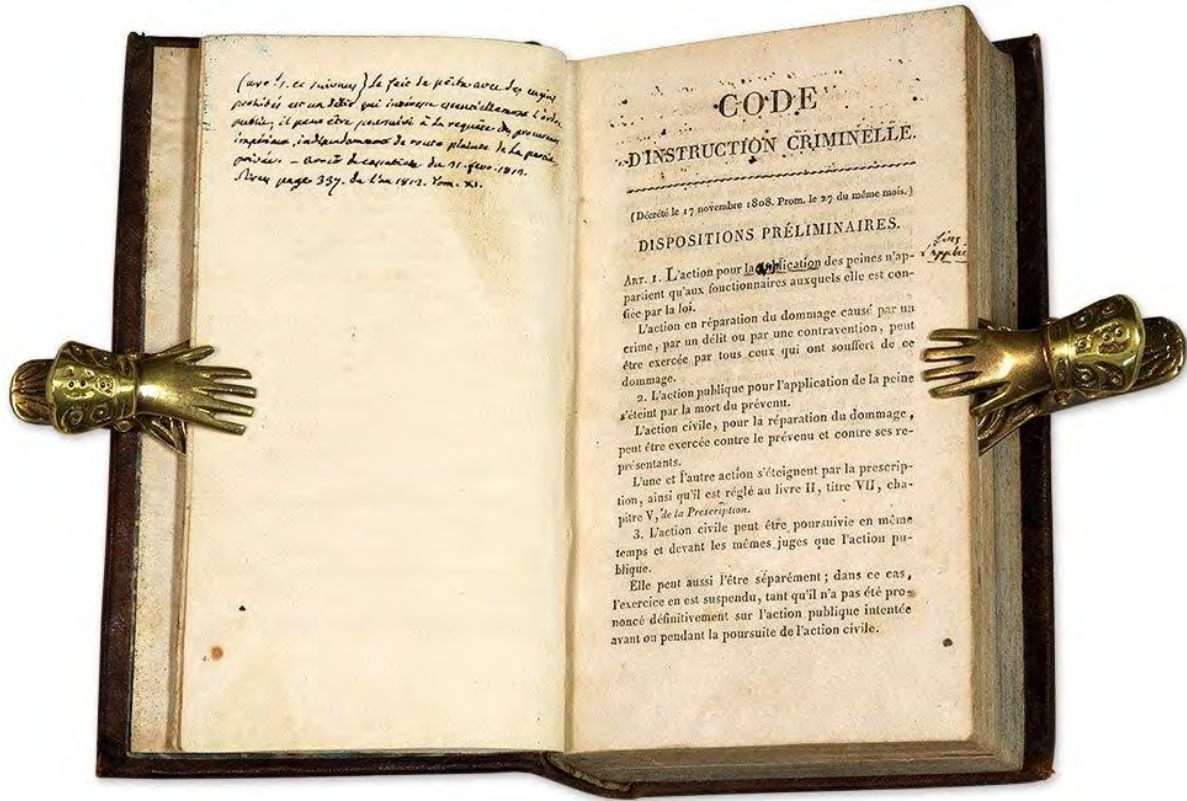 (art. 1. et suivans) Le fait de pêche avec des engins
prohibés est un délit qui intéresse essentiellement l'ordre
public, il peut être poursuivi à la requête des procureurs
impériaux, indépendamment de toute plainte de la partie
privée. — arrêt de cassation du 21. fevr. 1812.
Sirey page 337. de l'an 1812. Tom. XI.
CODE
D'INSTRUCTION CRIMINELLE.
(Décrété le 17 novembre 1808. Prom. le 27 du même mois.)
DISPOSITIONS PRÉLIMINAIRES.
ART. 1. L'action pour la application des peines n'ap-
partient qu'aux fonctionnaires auxquels elle est con-
fiée par la loi.
L'action en réparation du dommage causé par un
crime, par un délit ou par une contravention, peut
être exercée par tous ceux qui ont souffert de ce
dommage.
2. L'action publique pour l'application de la peine
s'éteint par la mort du prévenu.
L'action civile, pour la réparation du dommage,
peut être exercée contre le prévenu et contre ses re-
présentants.
L'une et l'autre action s'éteignent par la prescrip-
tion, ainsi qu'il est réglé au livre II, titre VII, cha-
pitre V, de la Prescription.
3. L'action civile peut être poursuivie en même
temps et devant les mêmes juges que l'action pu-
blique.
Elle peut aussi l'être séparément ; dans ce cas,
l'exercice en est suspendu, tant qu'il n'a pas été pro-
noncé définitivement sur l'action publique intentée
avant ou pendant la poursuite de l'action civile.